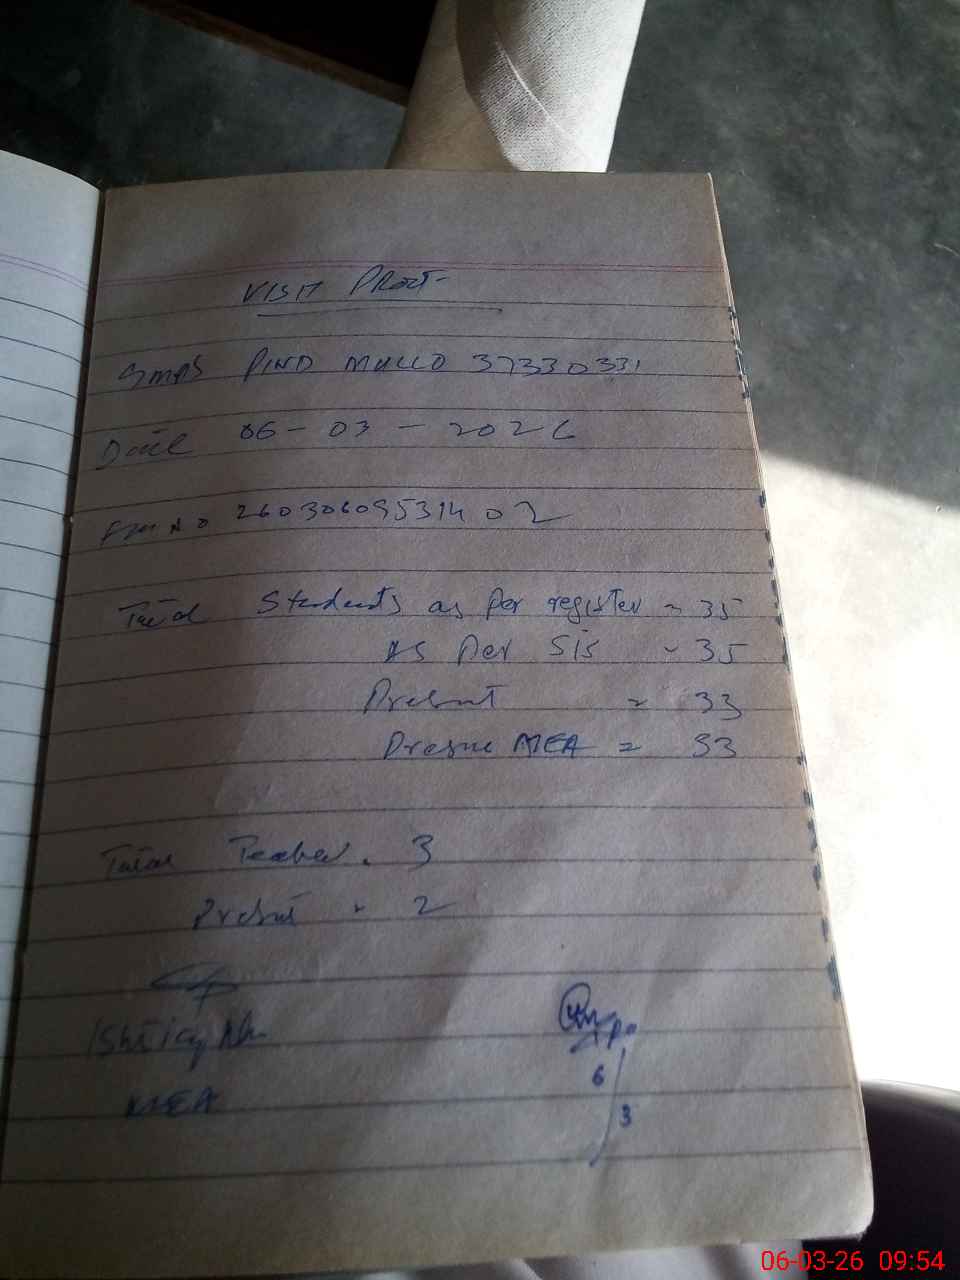 VISIT PROOF
GMPS PIND MULLO 37330331
Date 06-03-2026
260306095314 02
Total Students as per register = 35
AS Per SIS - 35
Present = 33
Present MEA = 33
Total Teacher . 3
Present - 2
MEA
6/3
06-03-26 09:54